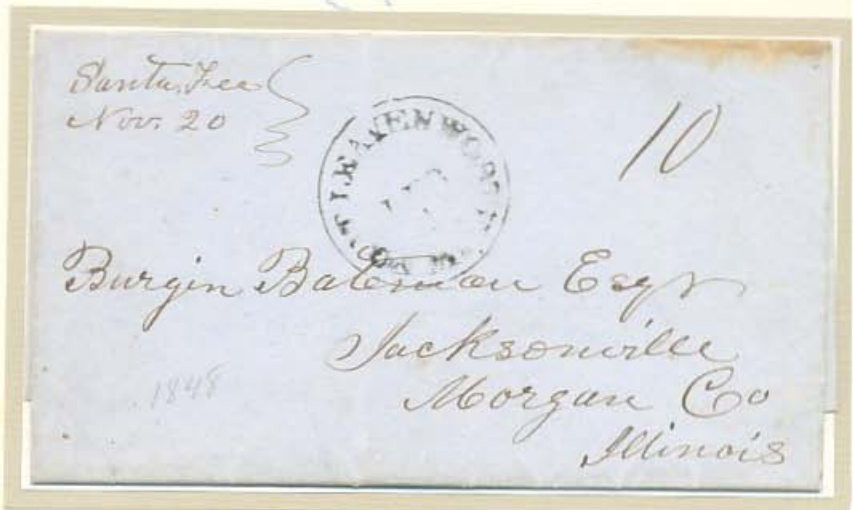 Santa Fee
Nov. 20
10
FT LEAVENWORTH
Burgin Bateman Esqr
Jacksonville
Morgan Co
Illinois
1848